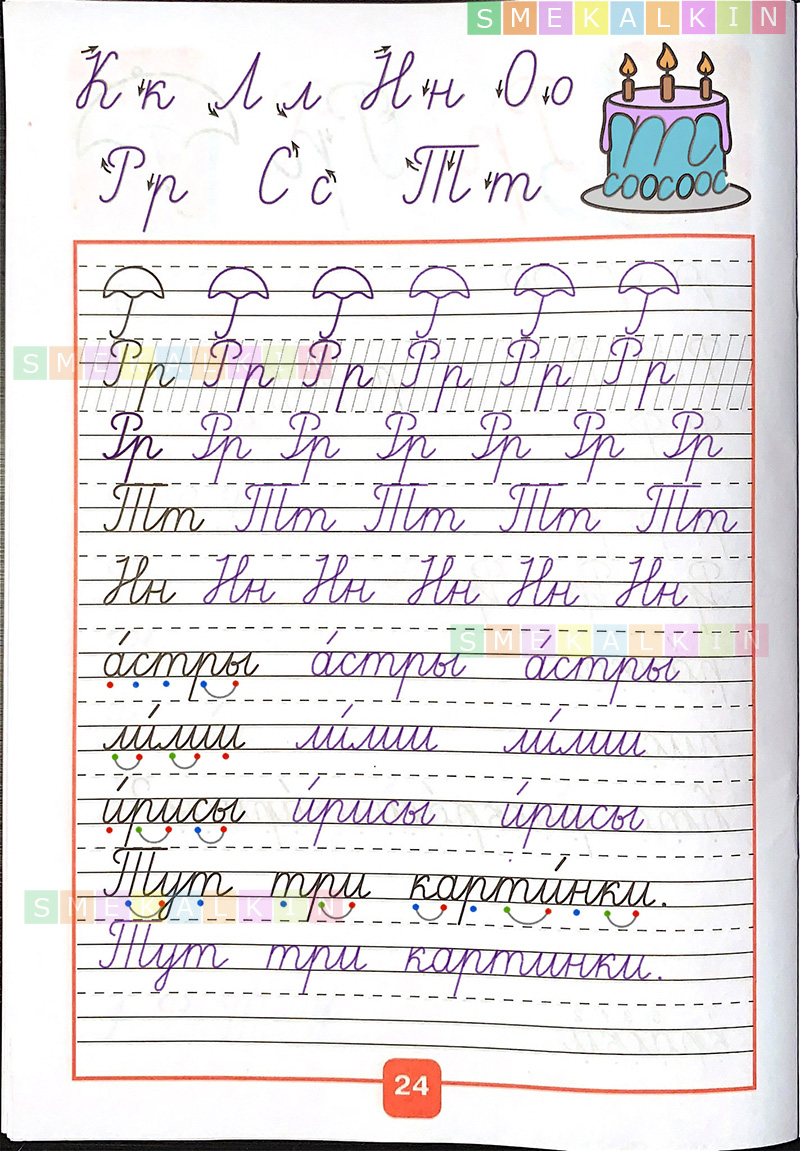 SMEKALKIN
К к Л л Н н О о
Р р С с Т т
т
соосоос
Рр Рр Рр Рр Рр Рр
SMEKALKIN
Рр Рр Рр Рр Рр Рр Рр
Тт Тт Тт Тт Тт
Нн Нн Нн Нн Нн Нн
SMEKALKIN
а́стры а́стры а́стры
ли́лии ли́лии ли́лии
и́рисы и́рисы и́рисы
Тут три карти́нки.
SMEKALKIN
Тут три картинки.
24